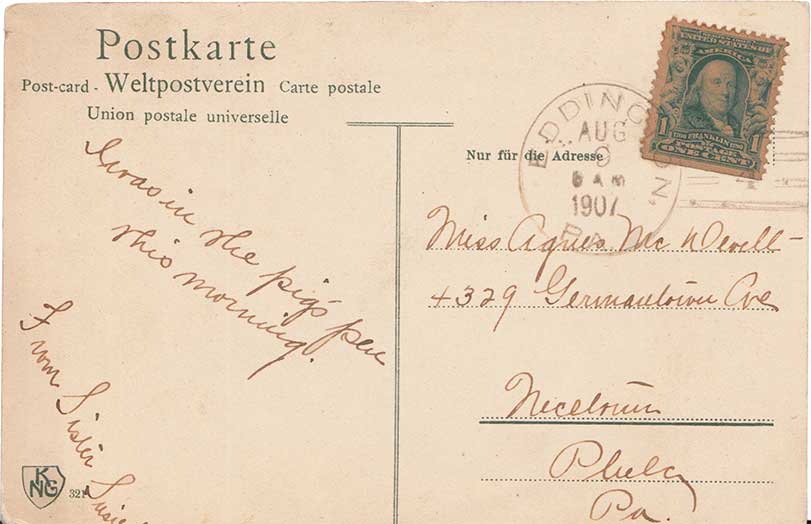 Postkarte
Post-card - Weltpostverein Carte postale
Union postale universelle
I was in the pig's pen
this morning.
From Sister Susie
KNG
321
Nur für die Adresse
EDDINGTON,
AUG
9
6 AM
1907
PA.
UNITED STATES OF
AMERICA
1 1706 FRANKLIN 1790 1
POSTAGE
ONE CENT
Miss Agnes McDevell
4329 Germantown Ave
Nicetown
Phila
Pa.